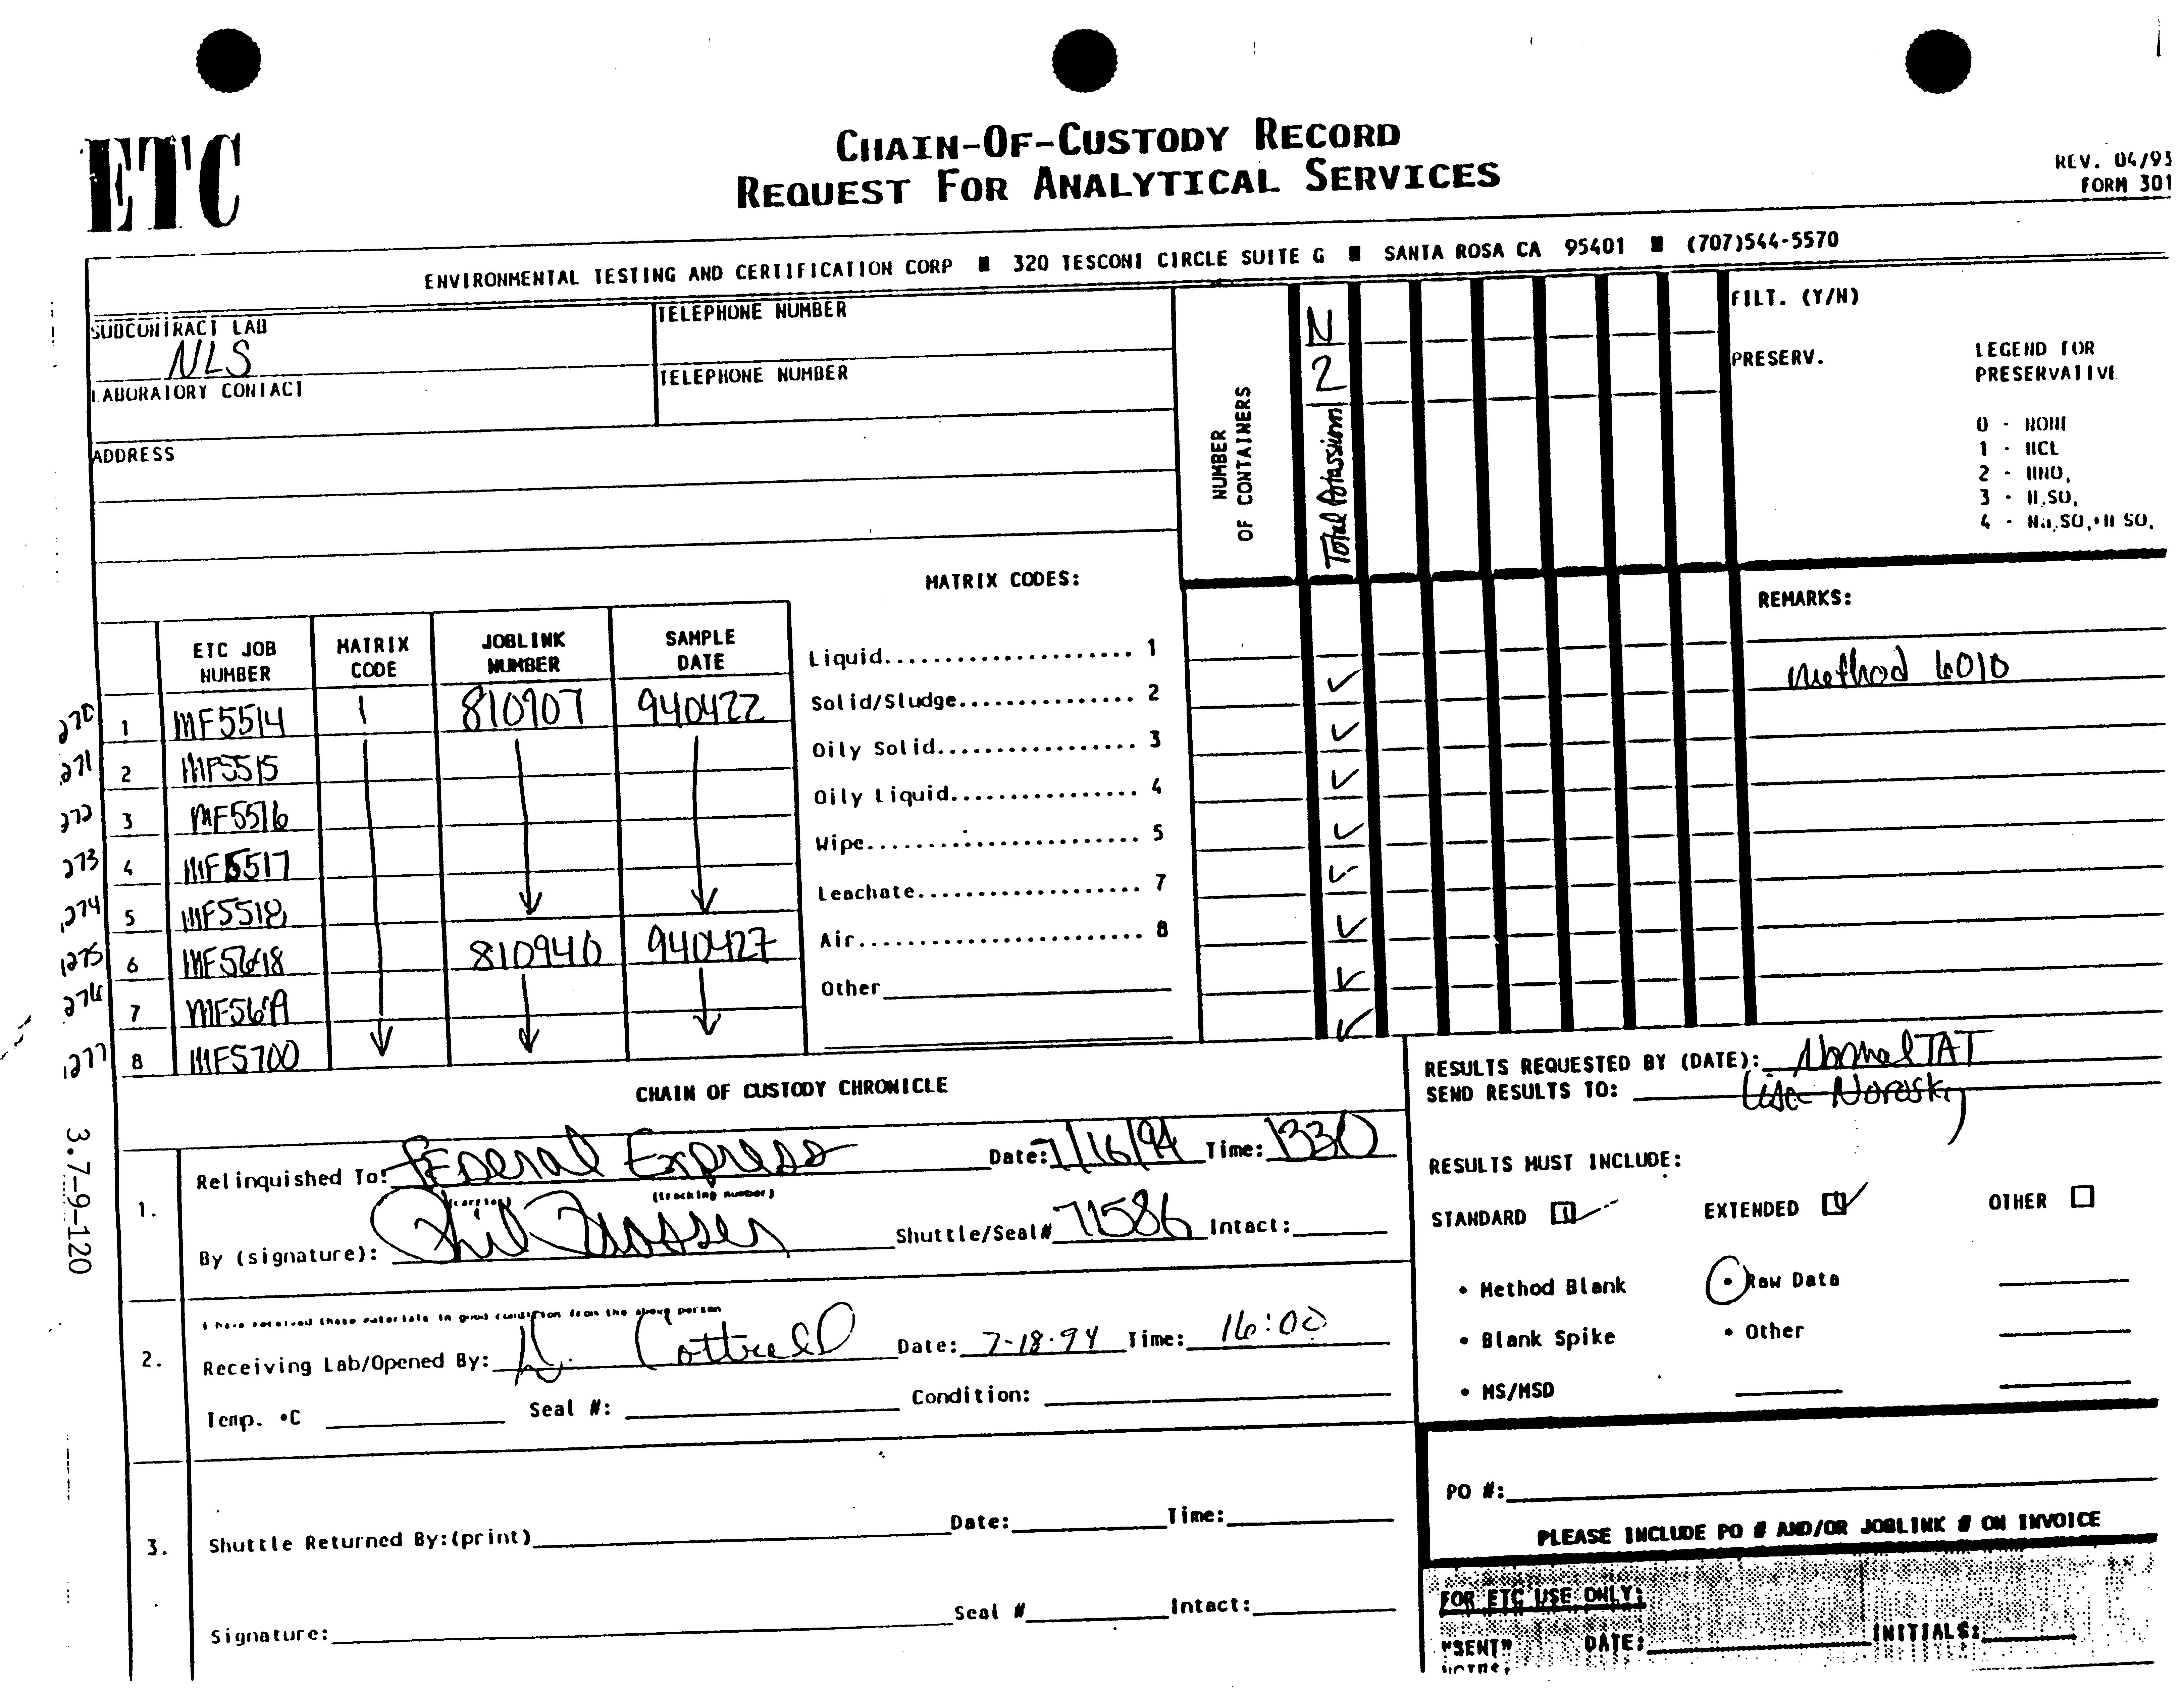 ETC
CHAIN-OF-CUSTODY RECORD
REQUEST FOR ANALYTICAL SERVICES
REV. 04/93
FORM 301
ENVIRONMENTAL TESTING AND CERTIFICATION CORP ■ 320 TESCONI CIRCLE SUITE G ■ SANTA ROSA CA 95401 ■ (707)544-5570
SUBCONTRACT LAB
NLS
TELEPHONE NUMBER
LABORATORY CONTACT
TELEPHONE NUMBER
ADDRESS
NUMBER
OF CONTAINERS
N
2
Total Potassium
FILT. (Y/N)
PRESERV.
LEGEND FOR
PRESERVATIVE
0 - NONE
1 - HCL
2 - HNO,
3 - H,SO,
4 - Na,SO,+H SO,
MATRIX CODES:
Liquid...................... 1
Solid/Sludge................ 2
Oily Solid.................. 3
Oily Liquid................. 4
Wipe........................ 5
Leachate.................... 7
Air......................... 8
Other
REMARKS:
Method 6010
ETC JOB NUMBER MATRIX CODE JOBLINK NUMBER SAMPLE DATE
270 1 MF5514 1 810907 940422
271 2 MF5515
272 3 MF5516
273 4 MF5517
274 5 MF5518
275 6 810940 940427
276 7
277 8 MF5700
3.7-9-120
CHAIN OF CUSTODY CHRONICLE
1.
Relinquished To: Federal Express Date: 7/16/94 Time: 1330
(carrier) (tracking number)
By (signature): Phil Shuttle/Seal# 71586 Intact:
2.
I have received these materials in good condition from the above person
Receiving Lab/Opened By: Cottrell Date: 7-18-94 Time: 16:00
Temp. °C Seal #: Condition:
3.
Shuttle Returned By:(print) Date: Time:
Signature: Seal # Intact:
RESULTS REQUESTED BY (DATE): Normal TAT
SEND RESULTS TO: Lisa Noresky
RESULTS MUST INCLUDE:
STANDARD EXTENDED OTHER
• Method Blank • Raw Data
• Blank Spike • Other
• MS/MSD
PO #:
PLEASE INCLUDE PO # AND/OR JOBLINK # ON INVOICE
FOR ETC USE ONLY:
"SENT" DATE: INITIALS:
NOTES: